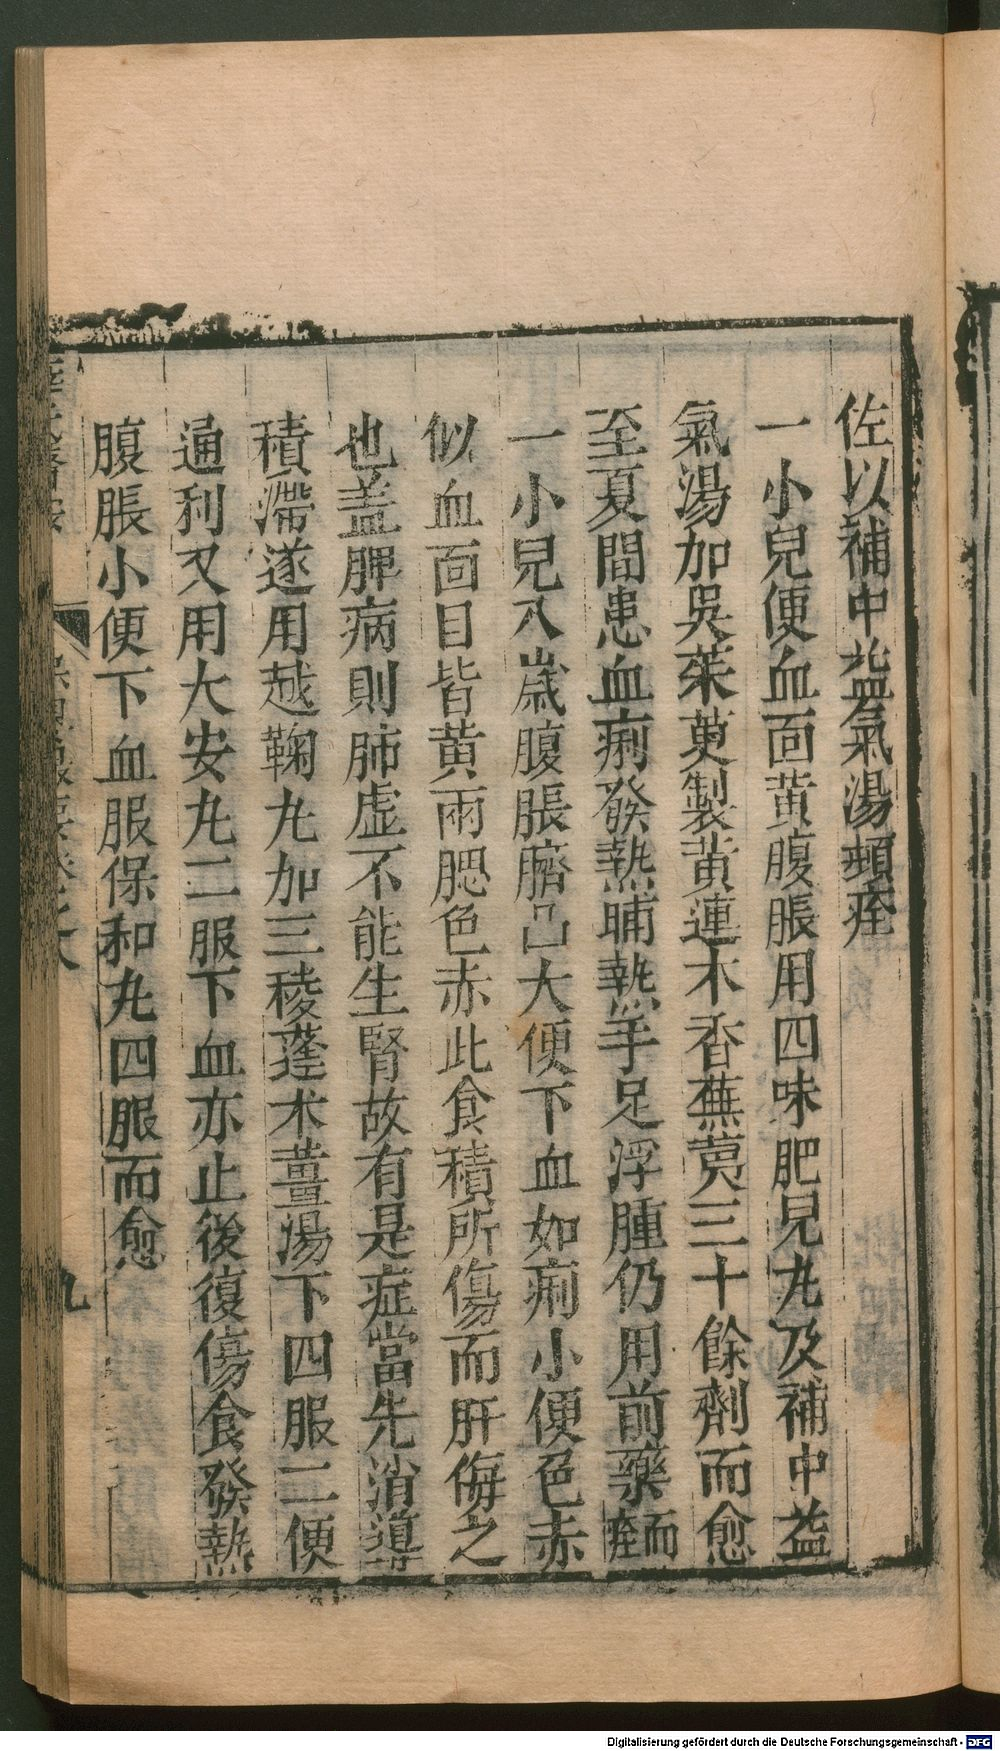 佐以補中益氣湯頓痊
一小兒便血面黄腹脹用四味肥兒丸及補中益
氣湯加吳茱萸製黃連木香蕪荑三十餘劑而愈
至夏間患血痢發熱晡熱手足浮腫仍用前藥而痊
一小兒八歲腹脹臍凸大便下血如痢小便色赤
似血面目皆黄兩腮色赤此食積所傷而肝侮之
也盖脾病則肺虚不能生腎故有是症當先消導
積滯遂用越鞠丸加三稜蓬朮薑湯下四服二便
通利又用大安丸二服下血亦止後復傷食發熱
腹脹小便下血服保和丸四服而愈
九
Digitalisierung gefördert durch die Deutsche Forschungsgemeinschaft - DFG